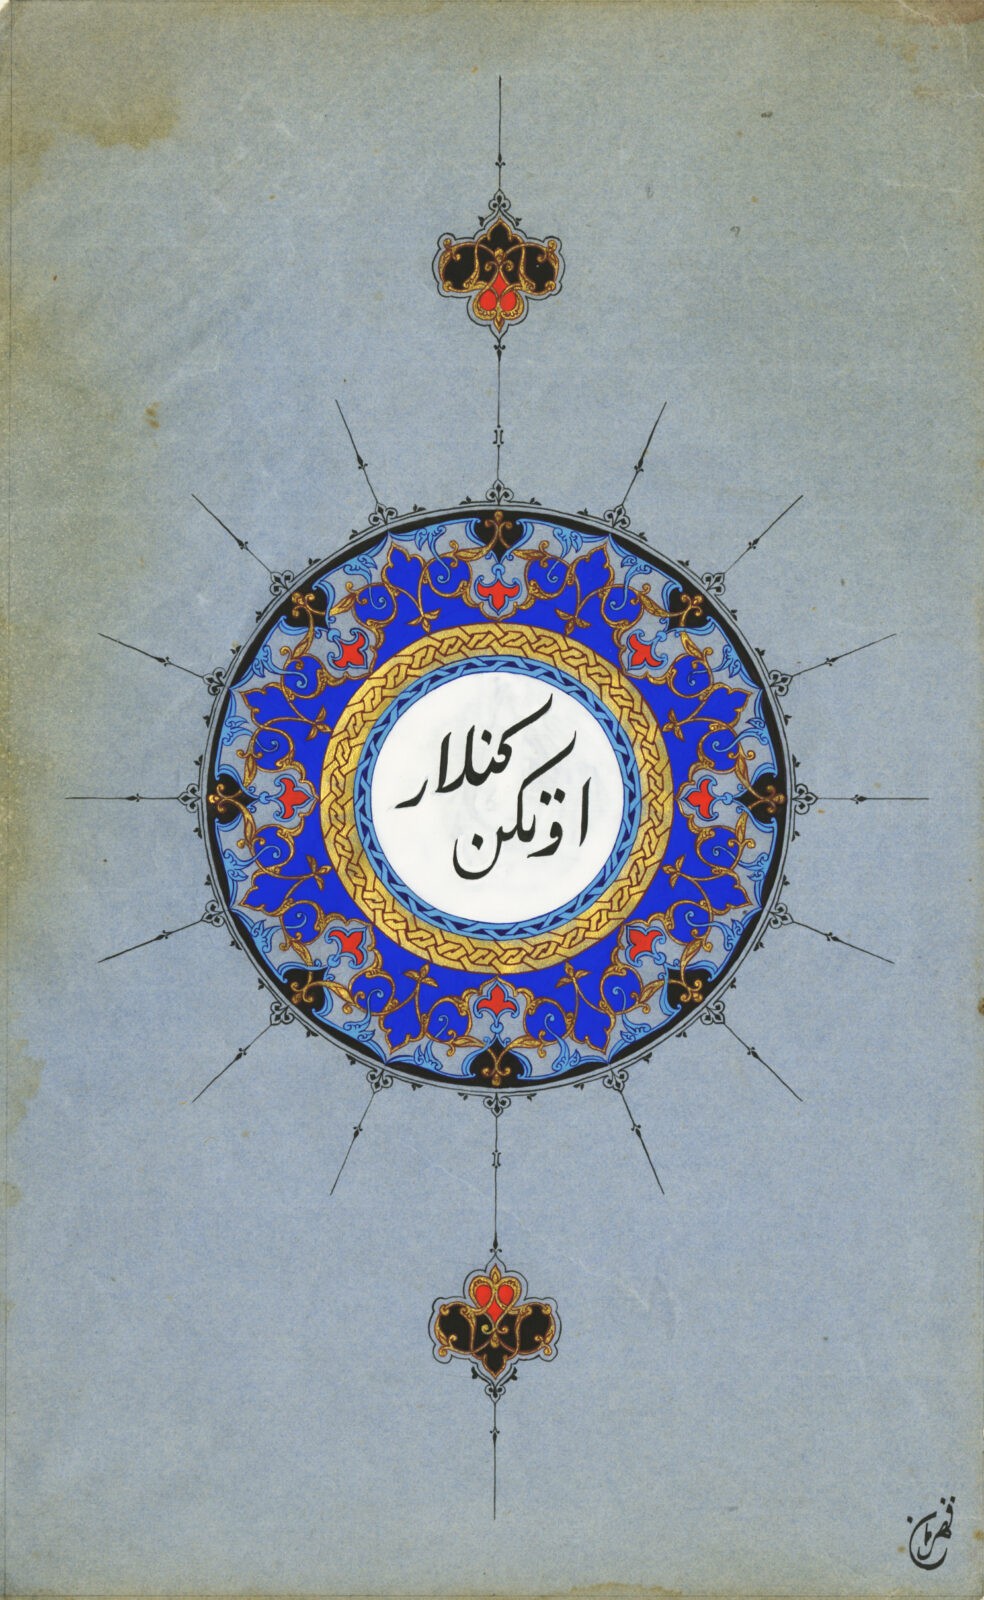 اوتكن
كنلار
قهرمان